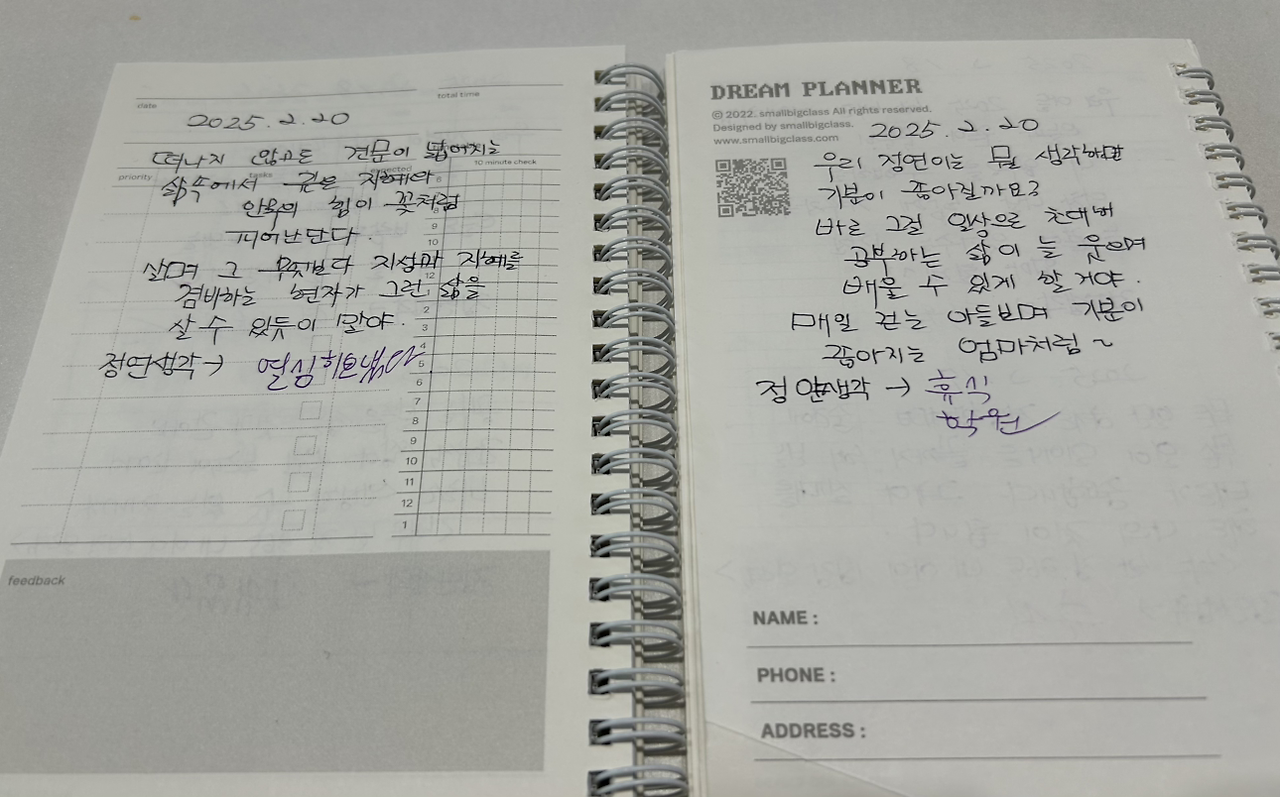 date
total time
2025.2.20
떠나지 않고도 견문이 넓어지는
priority
tasks
10 minute check
삶속에서 깊은 지혜와
안목의 힘이 꽃처럼
피어난단다.
살며 그 무엇보다 지성과 지혜를
겸비하는 현자가 그런 삶을
살 수 있듯이 말야.
정연생각→ 열심히
8
9
10
12
2
3
4
5
6
7
8
9
10
11
12
1
feedback
DREAM PLANNER
© 2022. smallbigclass All rights reserved.
Designed by smallbigclass.
www.smallbigclass.com
2025.2.20
우리 정연이는 뭘 생각하면
기분이 좋아질까요?
바로 그걸 일상으로 초대해
공부하는 삶이 늘 웃으며
배울 수 있게 할 거야.
매일 걷는 아들보며 기분이
좋아지는 엄마처럼~
정연생각 → 휴식
학원
NAME :
PHONE :
ADDRESS :